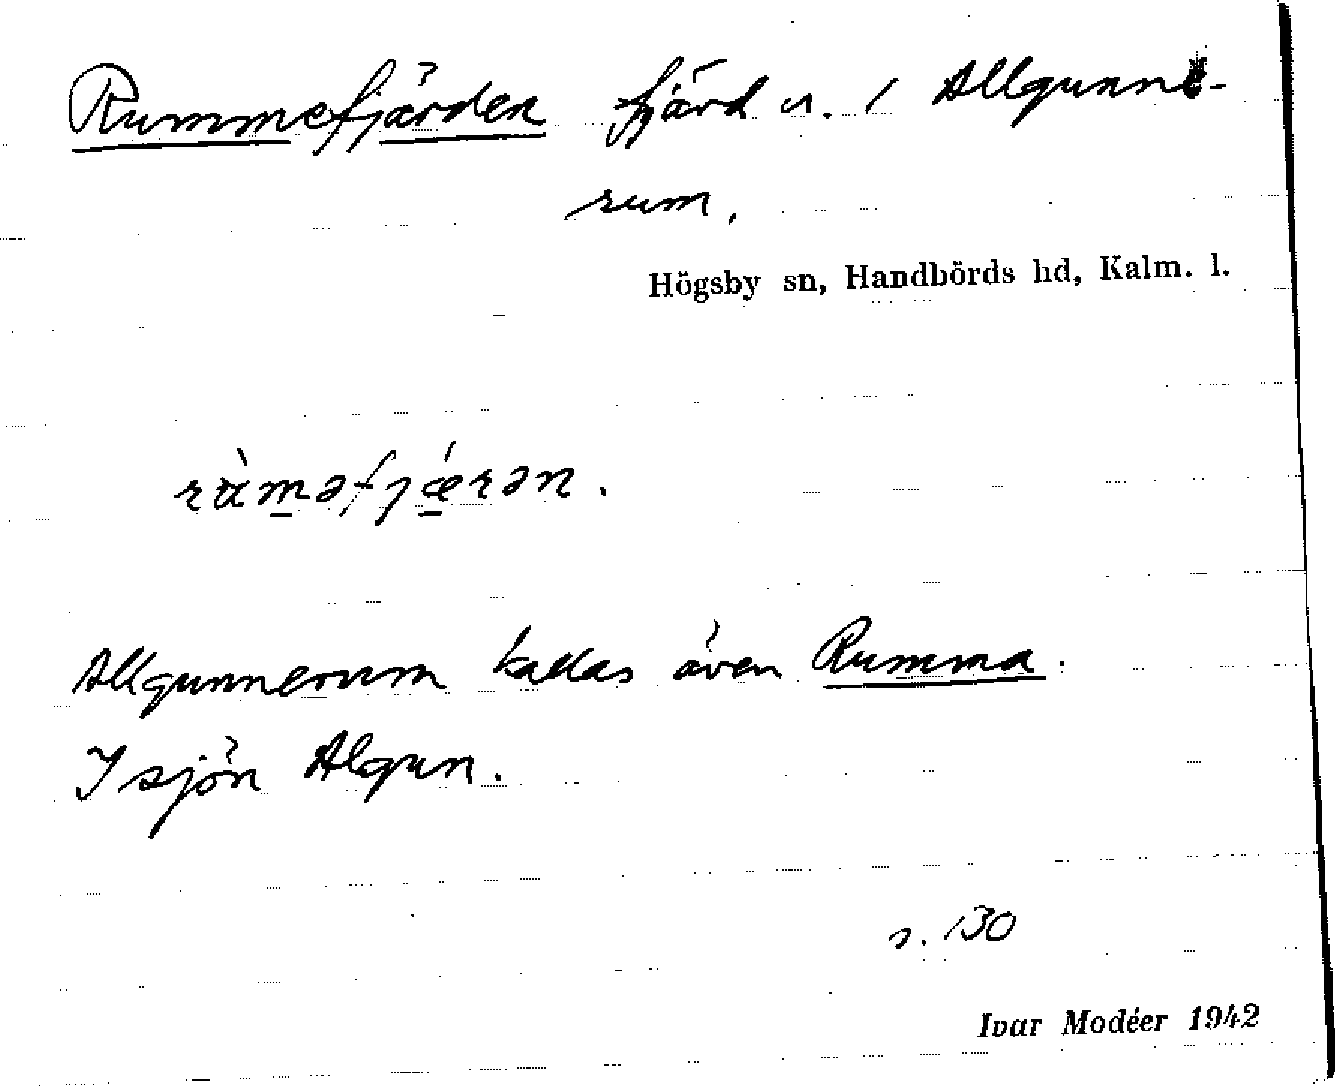 Rummefjärden fjärd u. / Allgunne-
rum.
Högsby sn, Handbörds hd, Kalm. l.
rɑ̀məfjǽrən.
Allgunnerum kallas även Rumma.
I sjön Algun.
s. 130
Ivar Modéer 1942